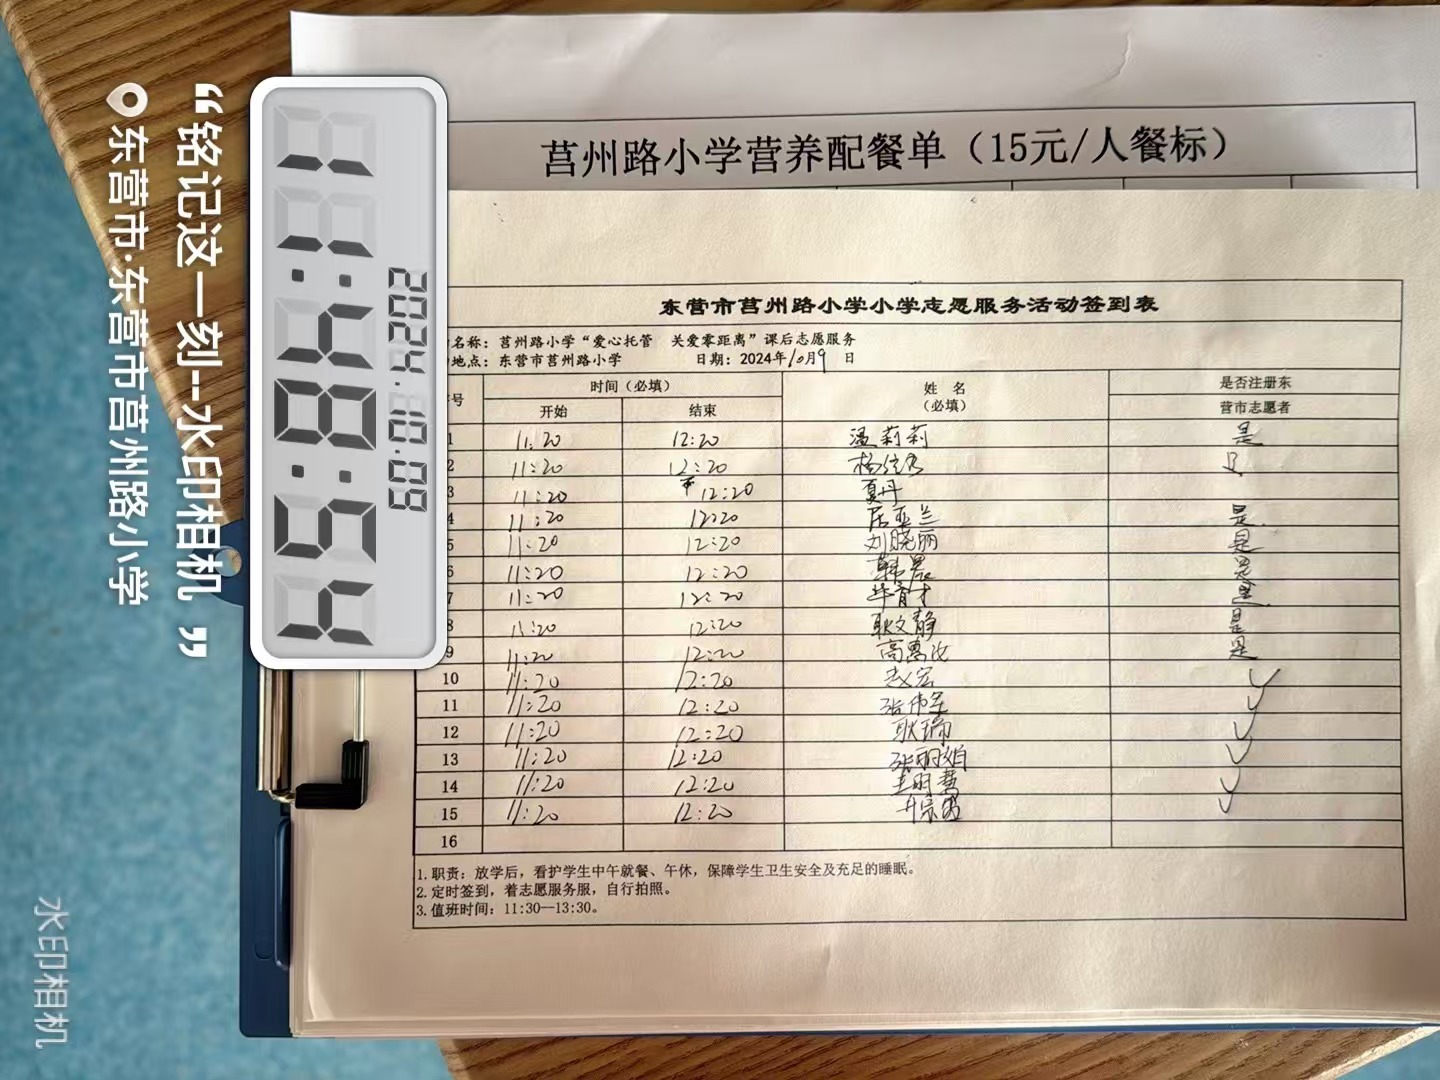 莒州路小学营养配餐单（15元/人餐标）
东营市莒州路小学小学志愿服务活动签到表
名称：莒州路小学“爱心托管 关爱零距离”课后志愿服务
地点：东营市莒州路小学 日期：2024年10月9日
号 时间（必填） 姓名（必填） 是否注册东营市志愿者
开始 结束
1 11:20 12:20 温莉莉 是
2 11:20 12:20
3 11:20 12:20 夏丹
4 11:20 12:20 是
5 11:20 12:20 刘晓丽 是
6 11:20 12:20 韩晨 是
7 11:20 12:20 毕育才 是
8 11:20 12:20 耿文静 是
9 11:20 12:20 是
10 11:20 12:20 赵宏 ✓
11 11:20 12:20 ✓
12 11:20 12:20 耿瑞 ✓
13 11:20 12:20 张丽娟 ✓
14 11:20 12:20 ✓
15 11:20 12:20 ✓
16
1.职责：放学后，看护学生中午就餐、午休，保障学生卫生安全及充足的睡眠。
2.定时签到，着志愿服务服，自行拍照。
3.值班时间：11:30—13:30。
2024.10.09
11:48:54
“铭记这一刻--水印相机”
东营市·东营市莒州路小学
水印相机